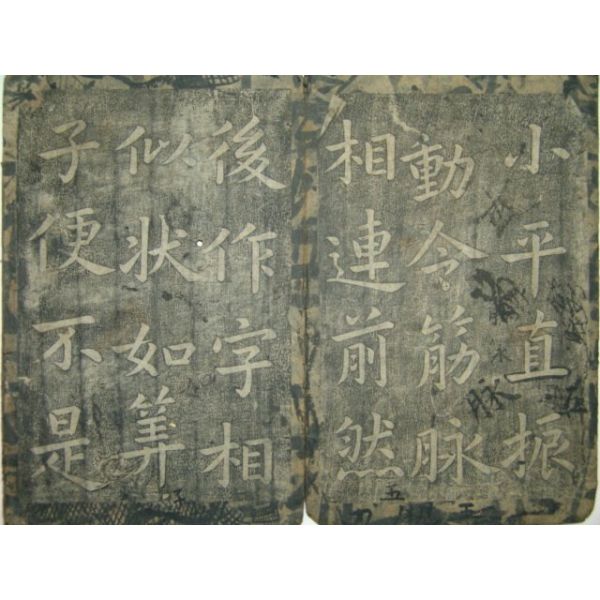 小平直振
動令筋脉
相連前然
後作字相
似状如筭
子便不是
五